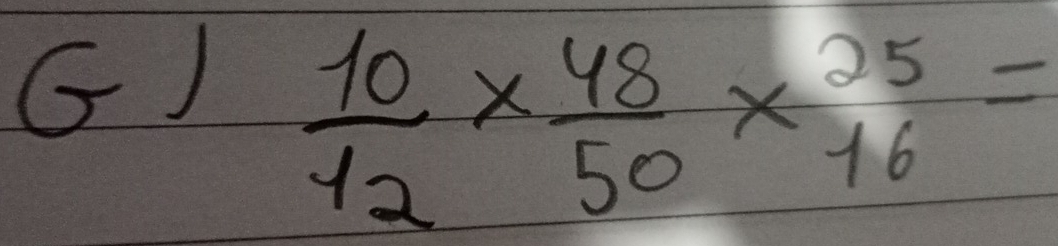 G) 10/12 × 48/50 × 25/16 =